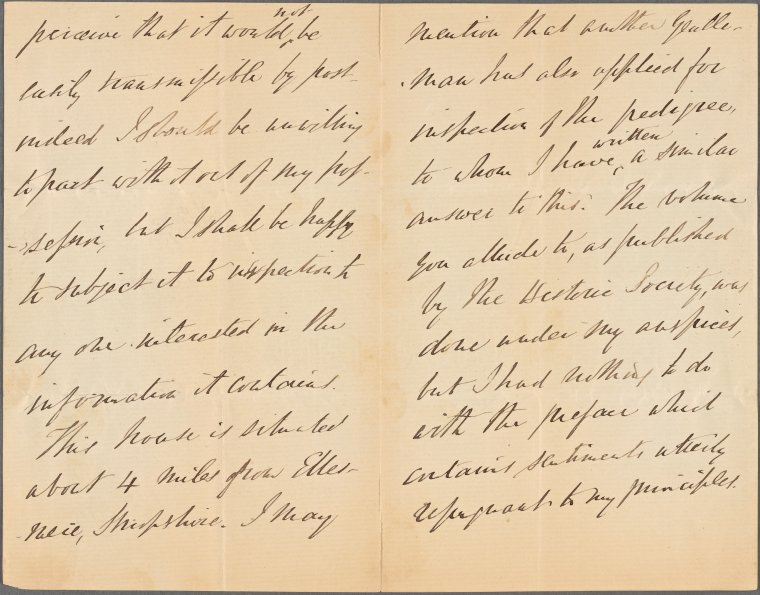 perceive that it would not be
easily transmissible by post-
indeed I should be unwilling
to part with it out of my pos-
-session, but I shall be happy
to subject it to inspection to
any one interested in the
information it contains.
This house is situated
about 4 miles from Elles-
-mere, Shropshire. I may
mention that another Gentle-
-man has also applied for
inspection of the pedigree,
to whom I have written a similar
answer to this. The volume
you allude to, as published
by the Historic Society, was
done under my auspices,
but I had nothing to do
with the preface which
contains sentiments utterly
repugnant to my principles.